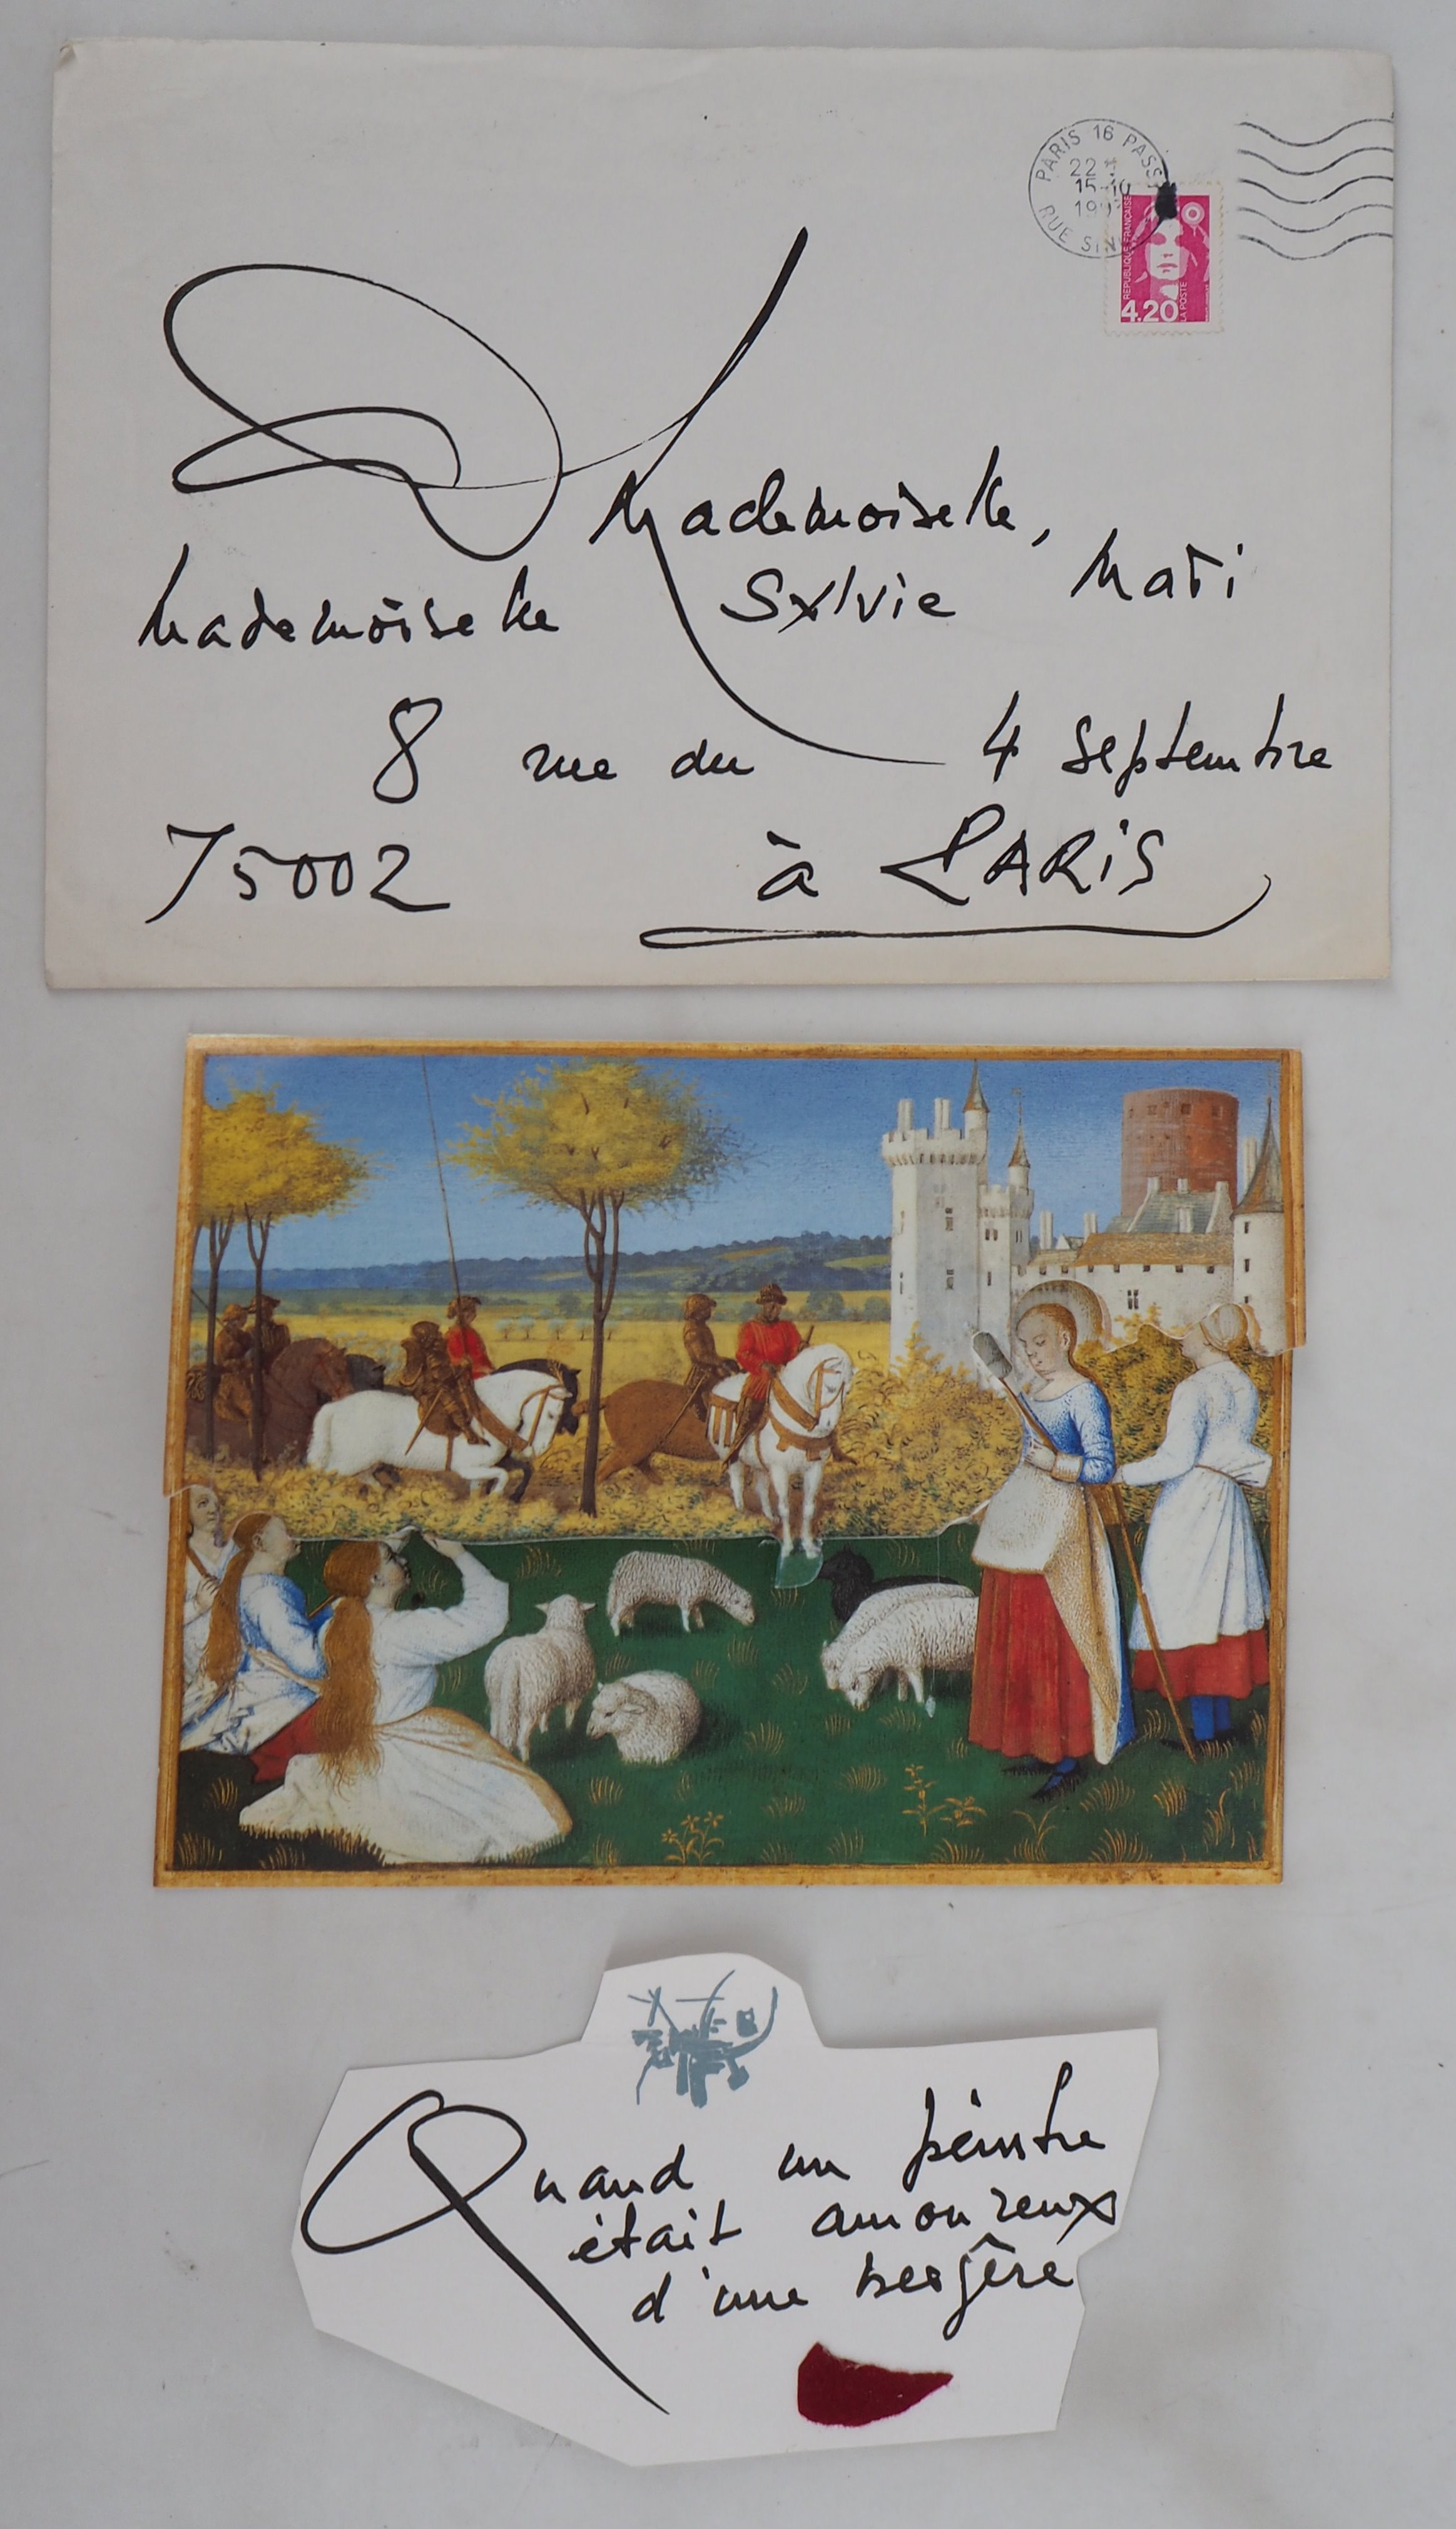 PARIS 16 PASS
22
15-10
199
RUE SIN
REPUBLIQUE FRANÇAISE
4.20
LA POSTE
Mademoiselle,
Mademoiselle Sylvie Mati
8 rue du 4 septembre
75002 à PARIS
Quand un peintre
était amoureux
d'une bergère